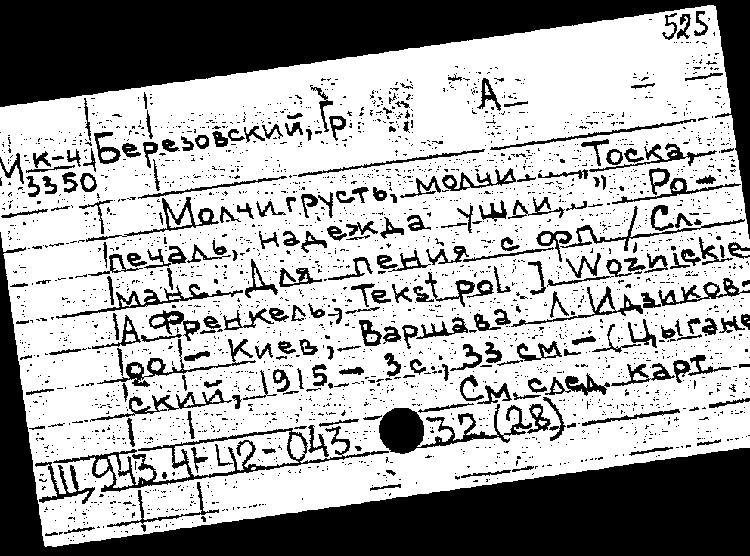 525
А
М К-4 Березовский, Гр
3350
Молчи грусть, молчи.... Тоска,
печаль, надежда ушли,..." : Ро-
манс: Для пения с фп. / Сл.
А. Френкель; Tekst pol. J. Woźnickie-
go. - Киев; Варшава: Л. Идзиков-
ский, 1915. - 3 с.; 33 см. - (Цыгане
См. след. карт.
III, 943.4-42-043. 32.(28)